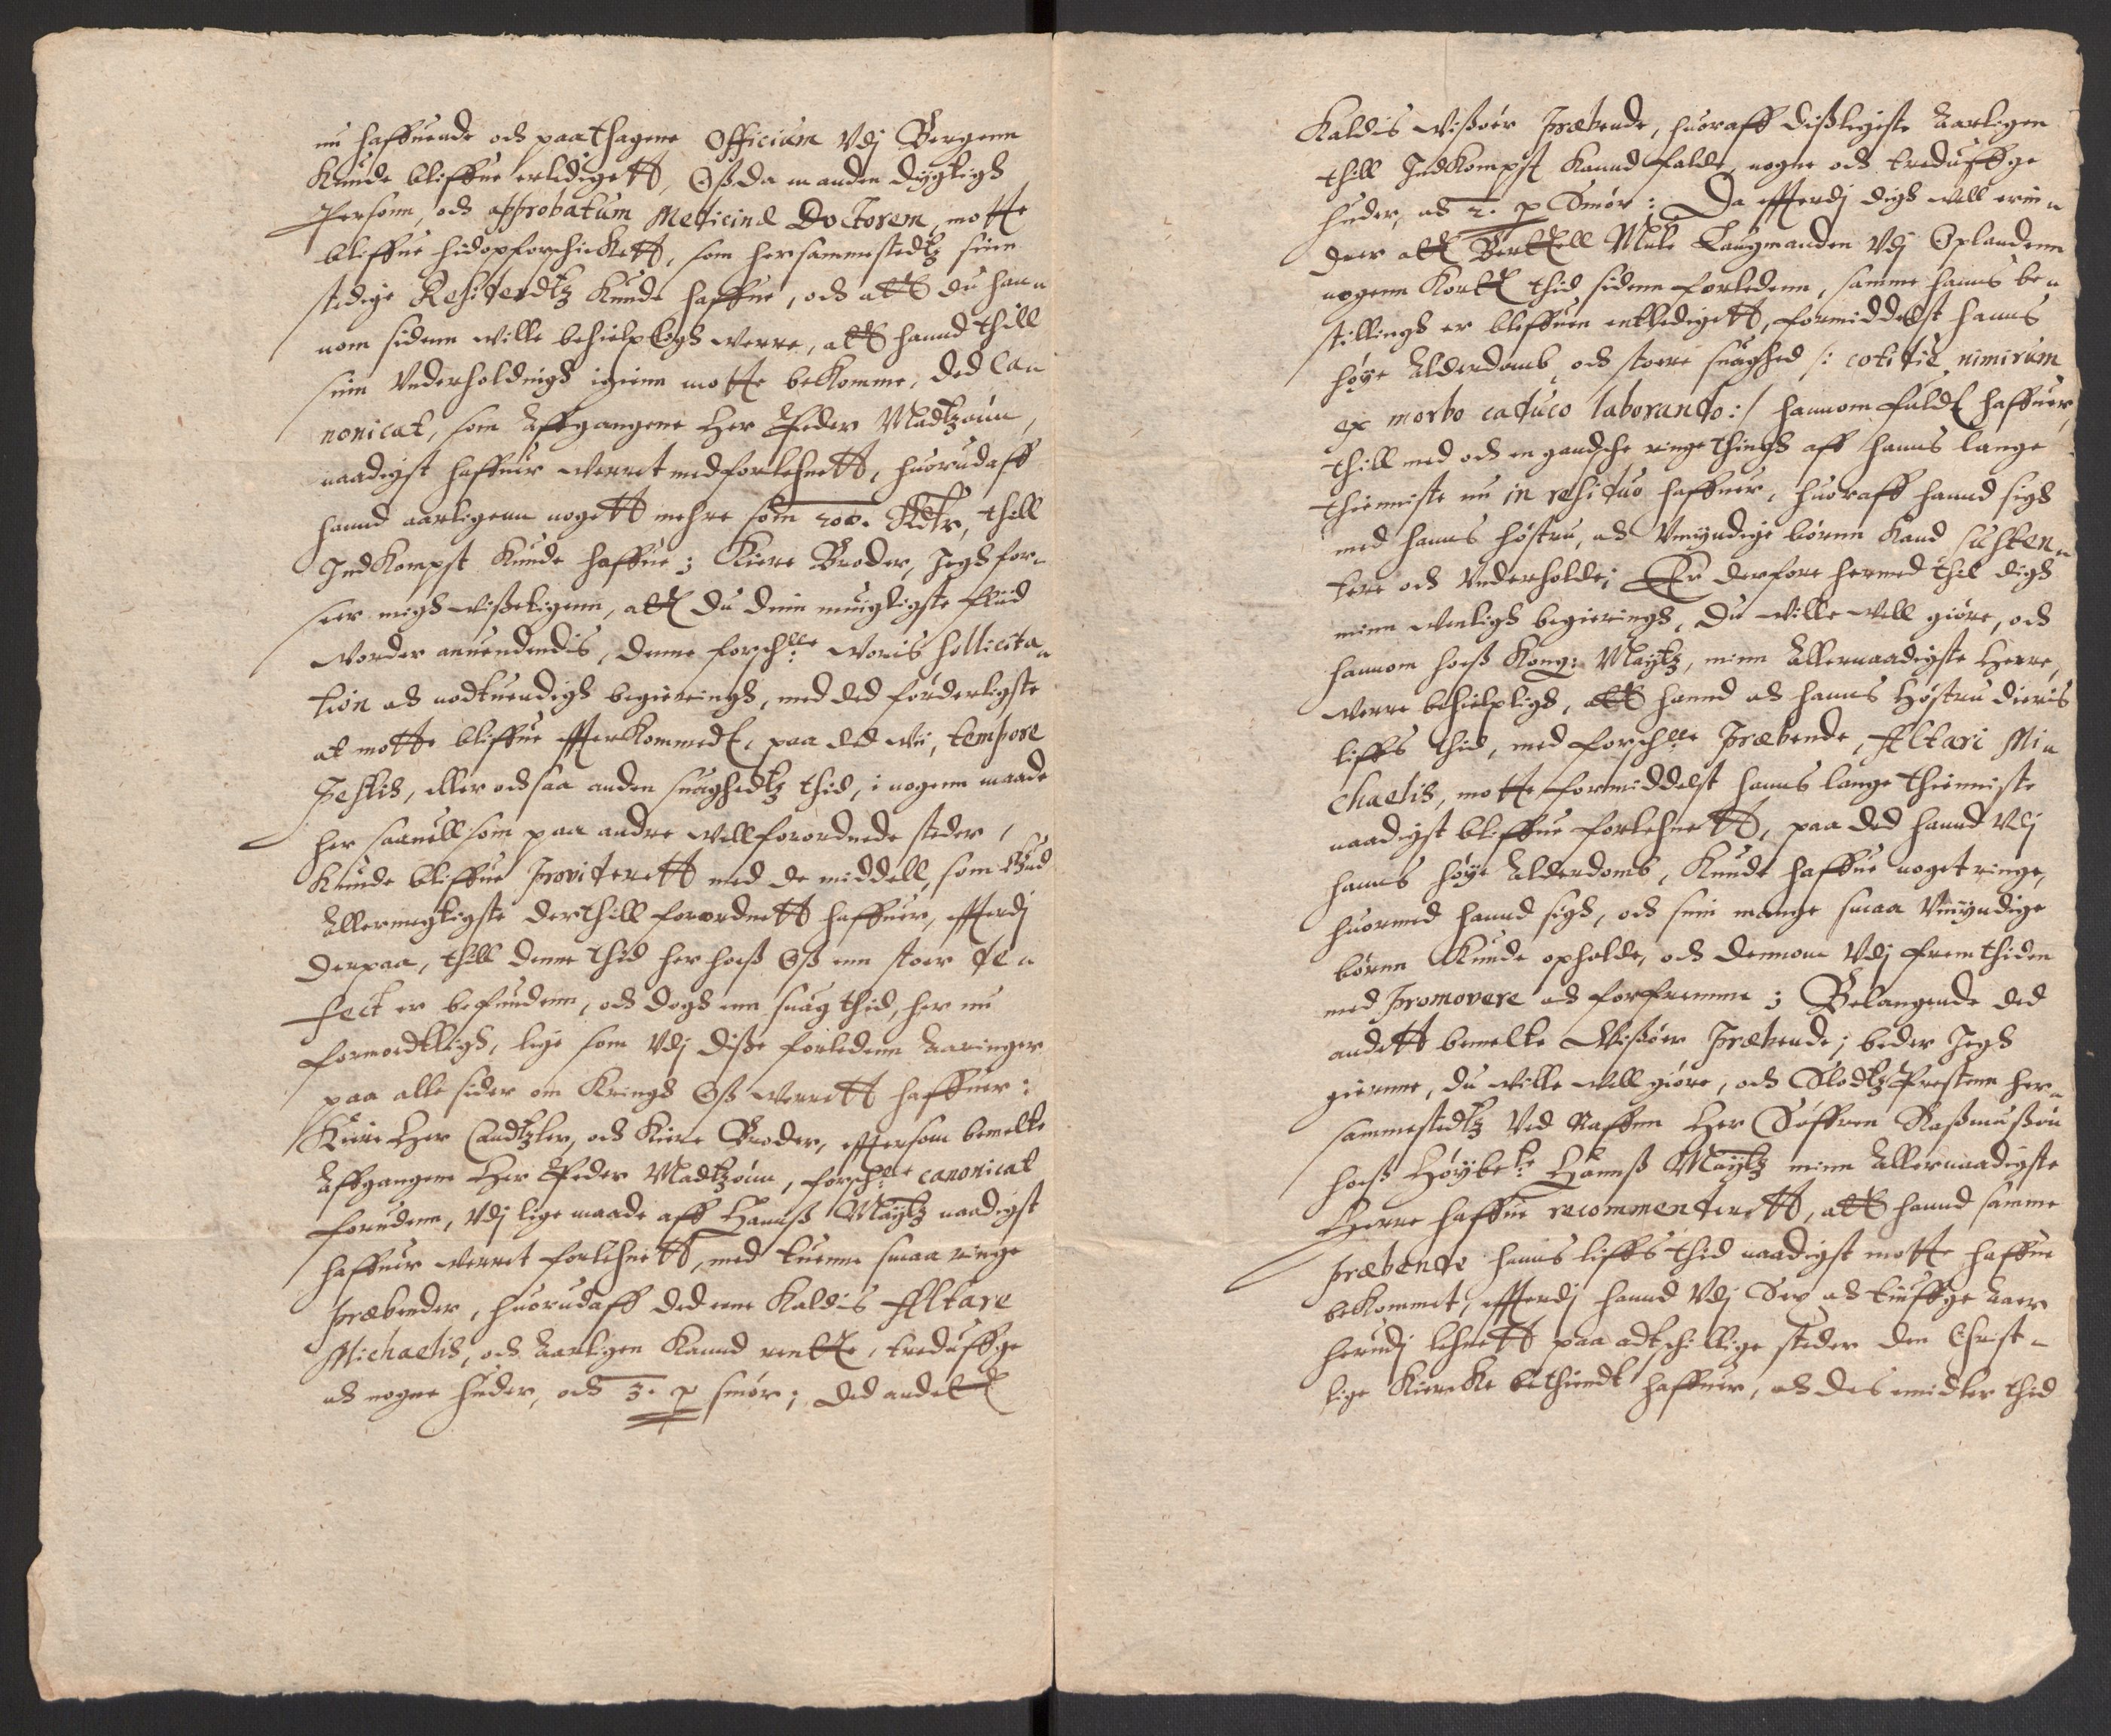 nu haffuende och paathagene Officium Vdj Bergenn
Kunde bliffue erledigett, Oss da in anden dygtigh
Persohn, och approbatum Medicinæ Doctorem, motte
bliffue hidopforschickett, som hersammestedtz sinn
stedige Residendtz Kunde haffue, och att du han-
nom sidenn wille behielpligh werre, att hannd thill
sinn Vnderholdnigh igienn motte bekomme, ded Ca-
nonicat, som Affgangene Her Peder Madtzønn,
naadigst haffuer werret medforlehnett, huorudaff
hannd aarligenn nogett mehre som 200. Rdr, thill
Indkompst Kunde haffue; Kiere Broder, Jegh for-
seer migh wisseligenn, att du dinn muigligste fliid
worder anuendendis, denne forschne woris sollicita-
tion och nodtuendigh begieringh, med ded forderligste
at motte bliffue efterkommedt, paa ded wii, tempore
Pestis, eller och saa anden suaghedtz thid, i nogenn maade
her saauell som paa andre wellforordnede steder,
Kunde bliffue Providerett med de middell, som Gud
Allermegtigste derthill forordnett haffuer, efterdj
derpaa, thill denne thid her hoess Oss enn stoer de-
fect er befundenn, och dogh enn suag thid, her nu
formodtligh, lige som Vdj disse forledenn Aaringer
paa alle sider om Kringh Oss werrett haffuer:
Kiere Her Candtzler, och Kiere Broder, eftersom bemelte
Affgangene Her Peder Madtzønn, forschne canonicat
forudenn, Vdj lige maade aff Hannss Maytz naadigst
haffuer werret forlehnett, med tuenne smaa ringe
Præbender, huorudaff ded ene Kaldis Altare
Michaelis, och Aarligen Kannd rentte, treduffge
och nogne huder, och 3. p smør; ded andett
Kaldis Wissøer Præbende, huoraff dissligeste Aarligen
thill Indkompst Kannd falde, nogne och treduffge
huder, och 2. p Smør: Da efterdj digh well erin-
drer att Bertell Mule Laugmanden Vdj Oplandenn
nogenn Kortt thid sidenn forledenn, samme hanns be-
stillingh er bleffuen entledigett, formiddelst hanns
høye Alderdomb och stoere suaghed /: cotidie nimirum
ex morbo caduco laborando:/ hannom fuldt haffuer,
thill med och en gandsche ringe thingh aff hanns lange
thienniste nu in residuo haffuer, huoraff hannd sigh
med hanns høstru, och Vmyndige børnn Kand susten-
tere och Vnderholde; Er derfore hermed thil digh
minn wenligh begieringh, du wille well giøre, och
hannom hoess Kong: Maytz, minn Allernaadigste Herre,
werre behielpligh, att hannd och hanns Høstru dieris
liffs thid, med forschne Præbende, Altari Mi-
chaelis, motte formiddelst hanns lange thienniste
naadigst bliffue forlehnett, paa ded hannd Vdj
hanns høye Alderdomb, Kunde haffue noget ringe,
huormed hannd sigh, och sine mange smaa Vmyndige
børnn Kunde opholde, och dennom Vdj fremthiden
med Promovere och forfremme; Belangende ded
andett bemelte Wissøer Præbende; beder Jegh
gierne, du wille well giøre, och Slodtz Prestenn her-
sammestedtz Ved Naffnn Her Søffren Rassmussøn
hoess Høybete Hannss Maytz minn Allernaadigste
Herre haffue recommenderett, att hannd samme
præbende hanns liffs thid naadigst motte haffue
bekommet, efterdj hannd Vdj Sex och tiuffge Aaer
herudj lehnett paa adtschillige steder den Christ-
lige Kiercke bethiendt haffuer, och des imidler thid